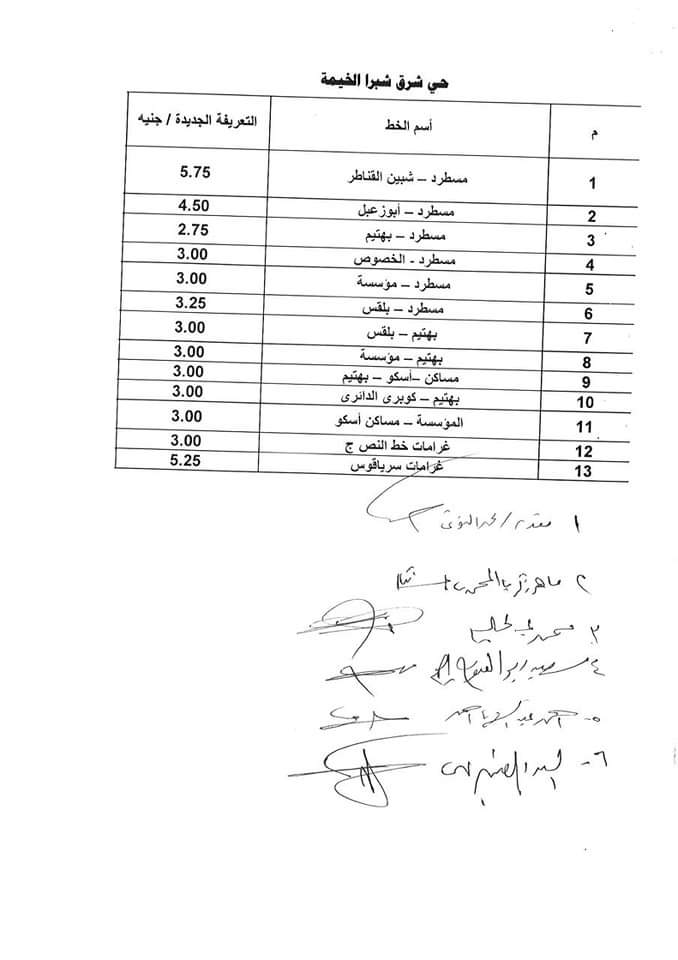 حي شرق شبرا الخيمة
م أسم الخط التعريفة الجديدة / جنيه
1 مسطرد – شبين القناطر 5.75
2 مسطرد – أبوزعبل 4.50
3 مسطرد – بهتيم 2.75
4 مسطرد - الخصوص 3.00
5 مسطرد – مؤسسة 3.00
6 مسطرد – بلقس 3.25
7 بهتيم – بلقس 3.00
8 بهتيم – مؤسسة 3.00
9 مساكن –أسكو – بهتيم 3.00
10 بهتيم – كوبرى الدائرى 3.00
11 المؤسسة – مساكن أسكو 3.00
12 غرامات خط النص ج 3.00
13 غرامات سرياقوس 5.25
١
٢ ماهر
٣ محمد
٤
٥-
٦- السيد